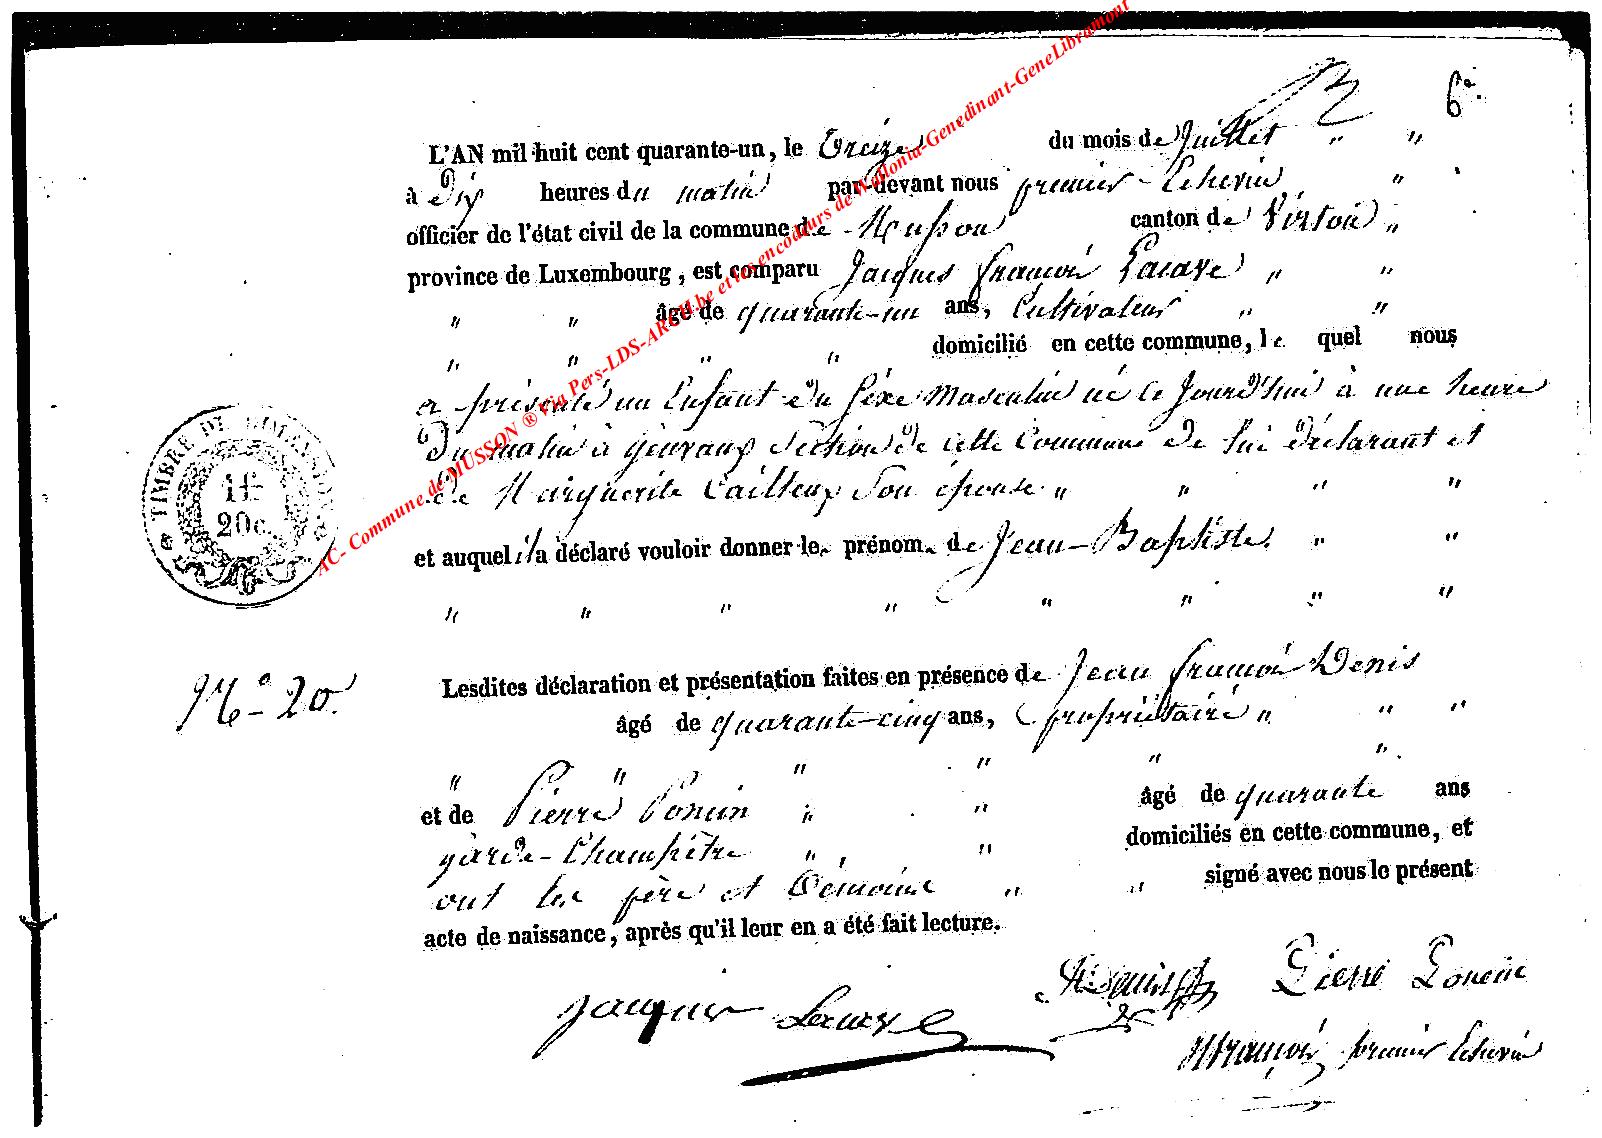 6e.
L'AN mil huit cent quarante-un, le treize du mois de Juillet " "
à Dix heures du matin par devant nous premier Echevin "
officier de l'état civil de la commune de Musson canton de Virton "
province de Luxembourg, est comparu Jacques françois Lacave " "
" " âgé de quarante-un ans, Cultivateur " "
" " " " domicilié en cette commune, le quel nous
a présenté un Enfant du Sèxe Masculin né ce Jourd'hui à une heure
Du matin à Gennevaux Section de cette Commune de lui déclarant et
de Marguerite Cailteux Son épouse " " " "
et auquel il a déclaré vouloir donner le prénom de Jean-Baptiste. " "
" " " " " " " "
TIMBRE DE DIMENSION
1f.
20c.
No 20.
Lesdites déclaration et présentation faites en présence de Jean françois Denis
âgé de quarante-cinq ans, propriétaire " " "
" " " " " "
et de Pierre Poncin " " âgé de quarante ans
garde-Champêtre " " domiciliés en cette commune, et
ont les père et témoins " " signé avec nous le présent
acte de naissance, après qu'il leur en a été fait lecture.
Jacques Lacave
Pierre Poncin
françois premier Echevin
AC- Commune de MUSSON ® Via Pers-LDS-ARCH.be et les encodeurs de Wallonia-Genedinant-GeneLibramont